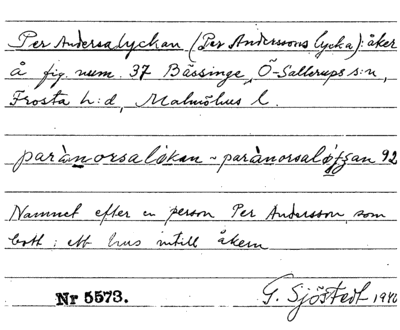 Per Andersalyckan (Per Anderssons lycka): åker
å fig. num. 37 Bässinge, Ö-Sallerups s:n,
Frosta h:d, Malmöhus l.
parànorsalókan ~ parànorsaló 92
Namnet efter en person Per Andersson, som
bott i ett hus intill åkern.
Nr 5573.
G. Sjöstedt 1940